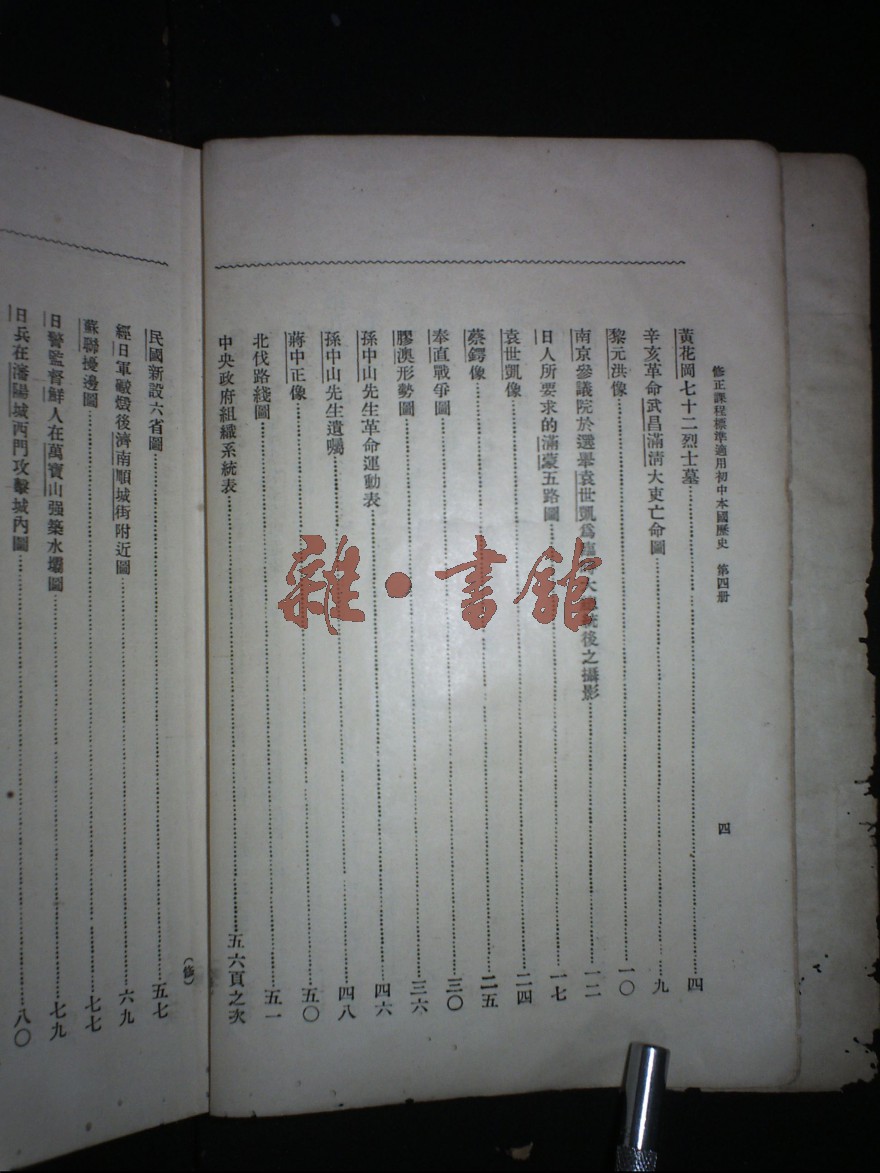 修正課程標準適用初中本國歷史　第四册
四
黃花岡七十二烈士墓……四
辛亥革命武昌滿清大吏亡命圖……九
黎元洪像……一〇
南京參議院於選舉袁世凱爲臨時大總統後之攝影……一二
日人所要求的滿蒙五路圖……一七
袁世凱像……二四
蔡鍔像……二五
奉直戰爭圖……三〇
膠澳形勢圖……三六
孫中山先生革命運動表……四六
孫中山先生遺囑……四八
蔣中正像……五〇
北伐路綫圖……五一
中央政府組織系統表……五六頁之次
（修）
民國新設六省圖……五七
經日軍毀燬後濟南順城街附近圖……六九
蘇聯擾邊圖……七七
日警監督鮮人在萬寶山强築水壩圖……七九
日兵在瀋陽城西門攻擊城內圖……八〇
雜·書館